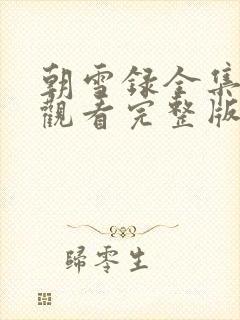 朝雪録全集
觀看完整版
歸零生